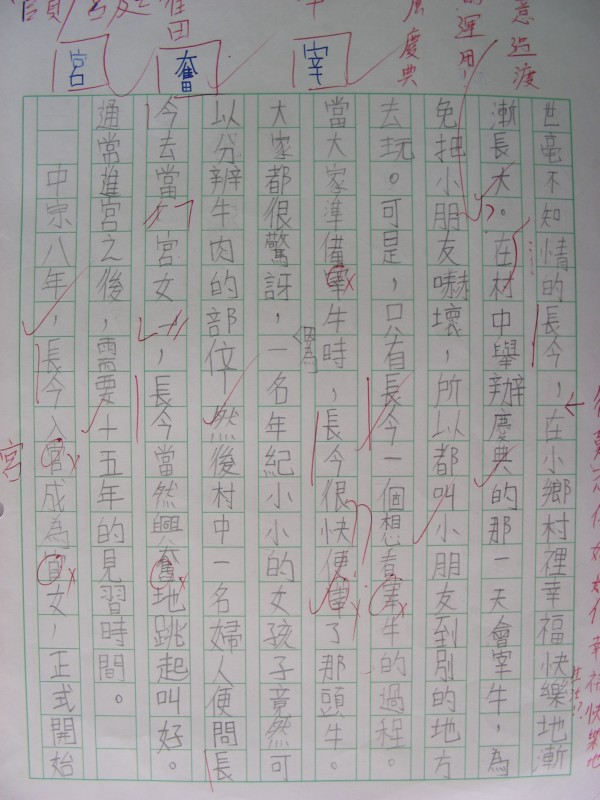 意過渡
運用！
慶典
宰
奮
宮
世毫不知情的長今，在小鄉村裡幸福快樂地漸
漸長大。在村中舉辦慶典的那一天會宰牛，為
免把小朋友嚇壞，所以都叫小朋友到別的地方
去玩。可是，只有長今一個想看宰牛的過程。
當大家準備宰牛時，長今很快便宰了那頭牛。
大家都很驚訝，一名年紀小小的女孩子竟然可
以分辨牛肉的部位然後村中一名婦人便問長
今去當「宮女」，長今當然興奮地跳起叫好。
通常進宮之後，需要十五年的見習時間。
中宗八年，長今入宮成為宮女，正式開始
宮